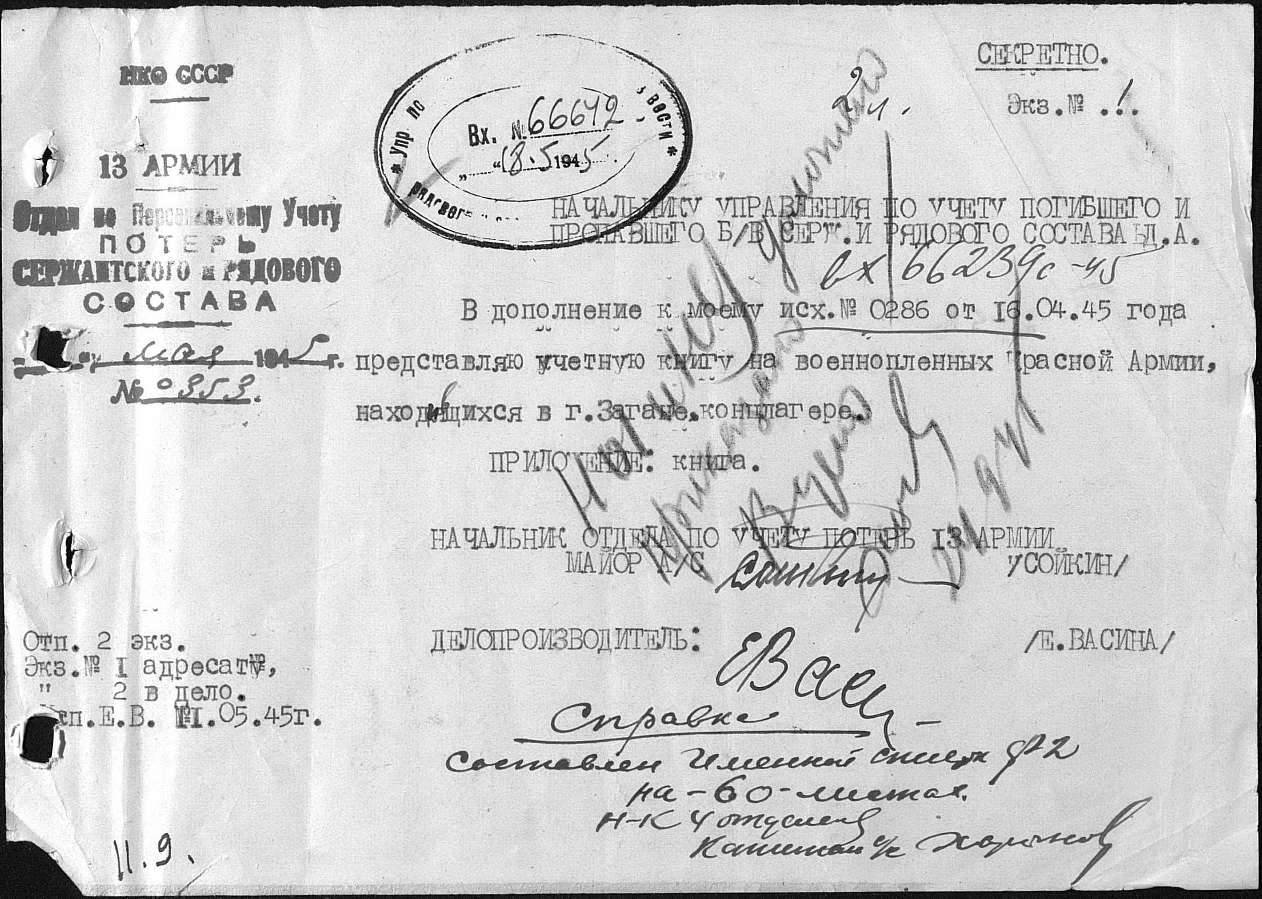 НКО СССР
13 АРМИИ
Отдел по Персональному Учету
ПОТЕРЬ
СЕРЖАНТСКОГО и РЯДОВОГО
СОСТАВА
мая 1945 г.
№ 0353.
Упр. по
Вх. № 66642
"18.5 1945
СЕКРЕТНО.
Экз.№ 1.
НАЧАЛЬНИКУ УПРАВЛЕНИЯ ПО УЧЕТУ ПОГИБШЕГО И
ПРОПАВШЕГО Б/В СЕРЖ.И РЯДОВОГО СОСТАВА Д.А.
вх 66239с-45
В дополнение к моему исх.№ 0286 от 16.04.45 года
представляю учетную книгу на военнопленных Красной Армии,
находившихся в г.Загане.концлагере.
ПРИЛОЖЕНИЕ: книга.
НАЧАЛЬНИК ОТДЕЛА ПО УЧЕТУ ПОТЕРЬ 13 АРМИИ
МАЙОР А/С /СОЙКИН/
ДЕЛОПРОИЗВОДИТЕЛЬ: /Е.ВАСИНА/
Отп. 2 экз.
Экз.№ I адресату,
" 2 в дело.
Исп.Е.В. 11.05.45г.
Справка
Составлен Именной список ф 2
на-60-листах.
н-к 4 отделения
Капитан а/с
11.9.